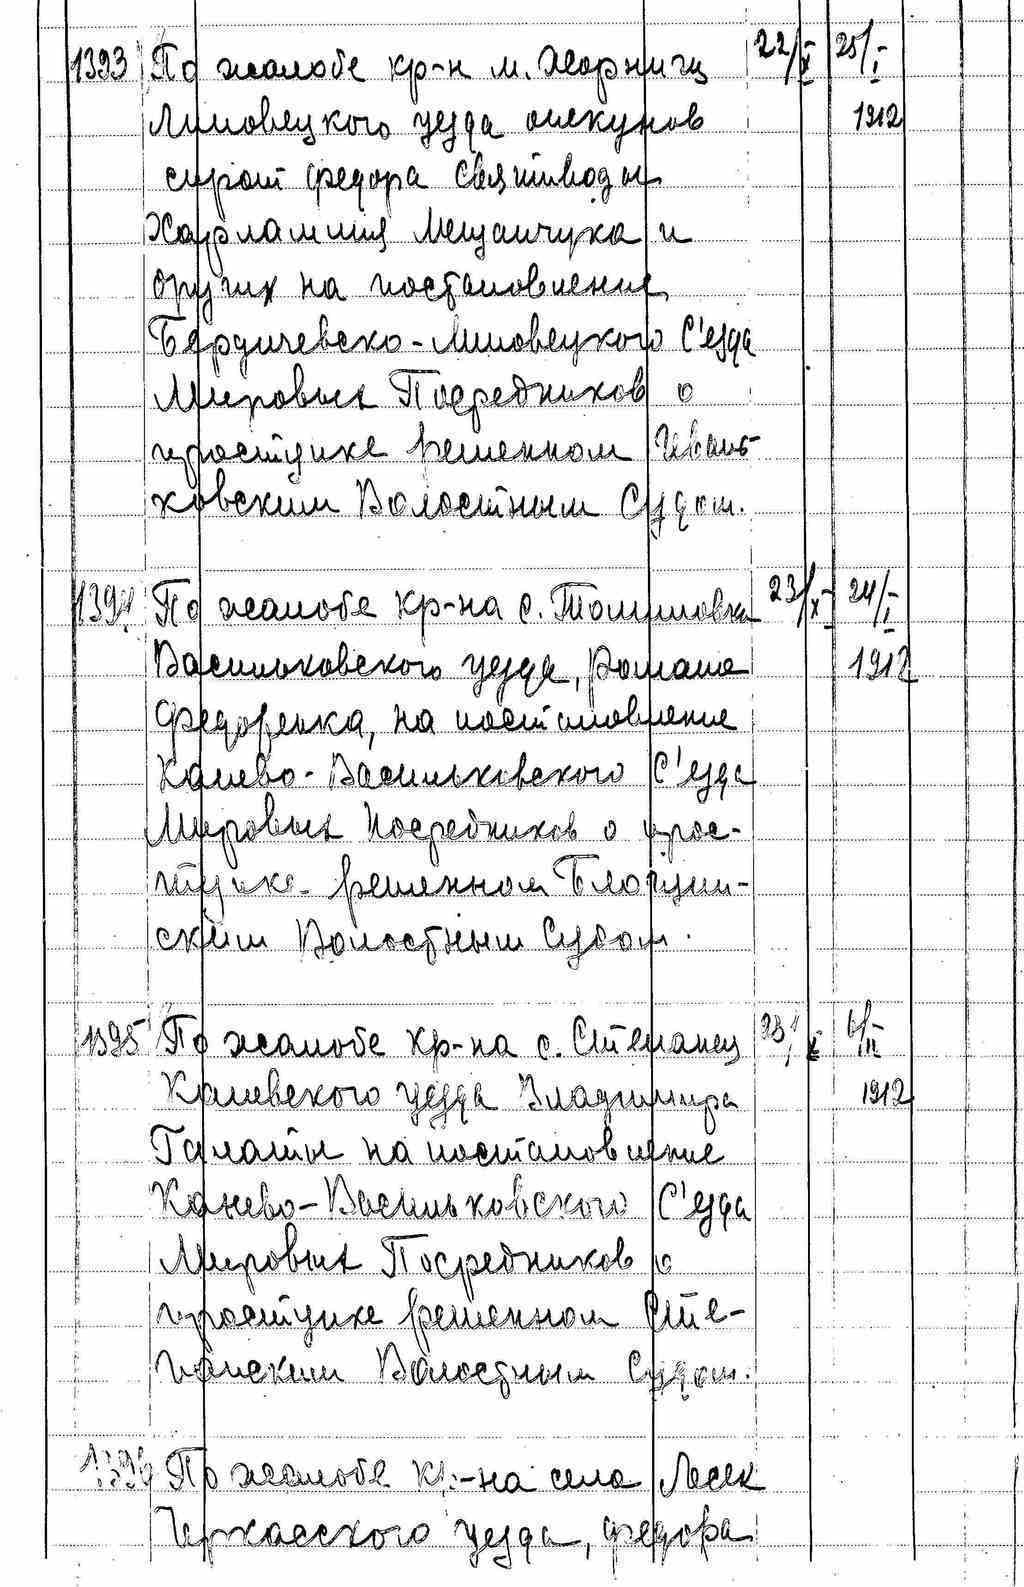 1393 По жалобе кр-н м. Жорнищ 22/X 25/I
Липовецкого уезда опекунов 1912
сирот Федора Святиводы
Харлампия Мещанчука и
других на постановление
Бердичевско-Липовецкого С'езда
Мировых Посредников о
проступке решенном Ивань-
ковским Волостным Судом.
1394 По жалобе кр-на с. Томиловки 23/X 24/I
Васильковского уезда, Романа 1912
Федоренка, на постановление
Канево-Васильковского С'езда
Мировых Посредников о прос-
тупке решенном
ским Волостным Судом.
1395 По жалобе кр-на с. Степанец 23/X 6/II
Каневского уезда Владимира 1912
Галаты на постановление
Канево-Васильковского С'езда
Мировых Посредников о
проступке решенном Сте-
панским Волостным Судом.
1396 По жалобе кр-на села Лесек
Черкасского уезда, Федора